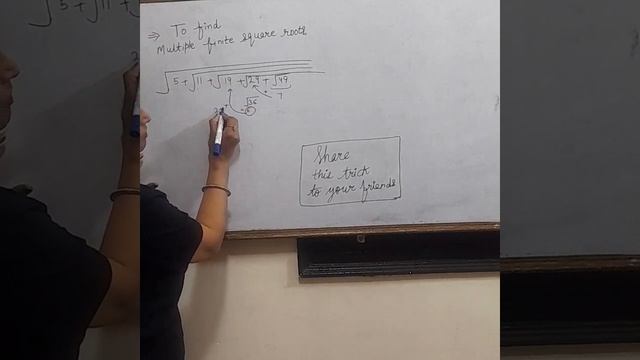 ⇒ To find
Multiple finite square roots
√5 + √11 + √19 + √29 + √49
7
√36
6
Share
this trick
to your friends